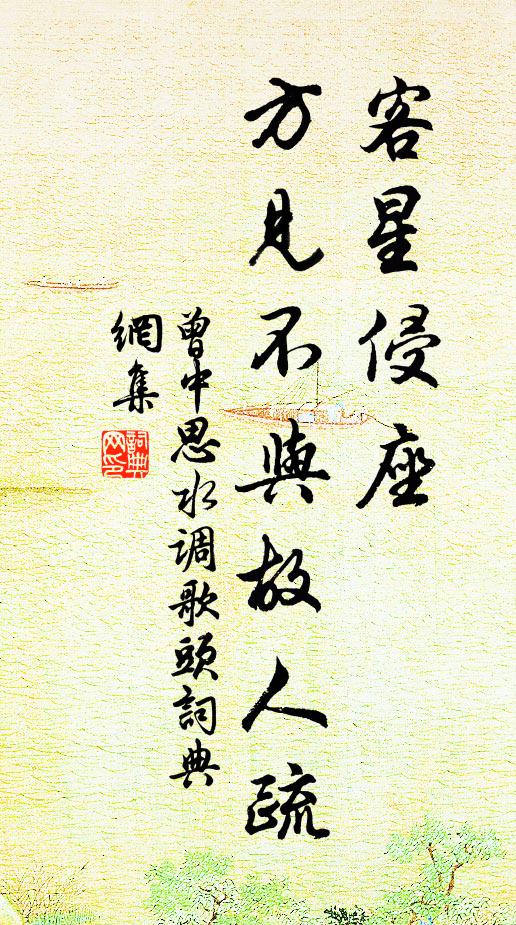 客星侵座
方見不與故人疏
曾中思水調歌頭詞典
網集
詞典
网印